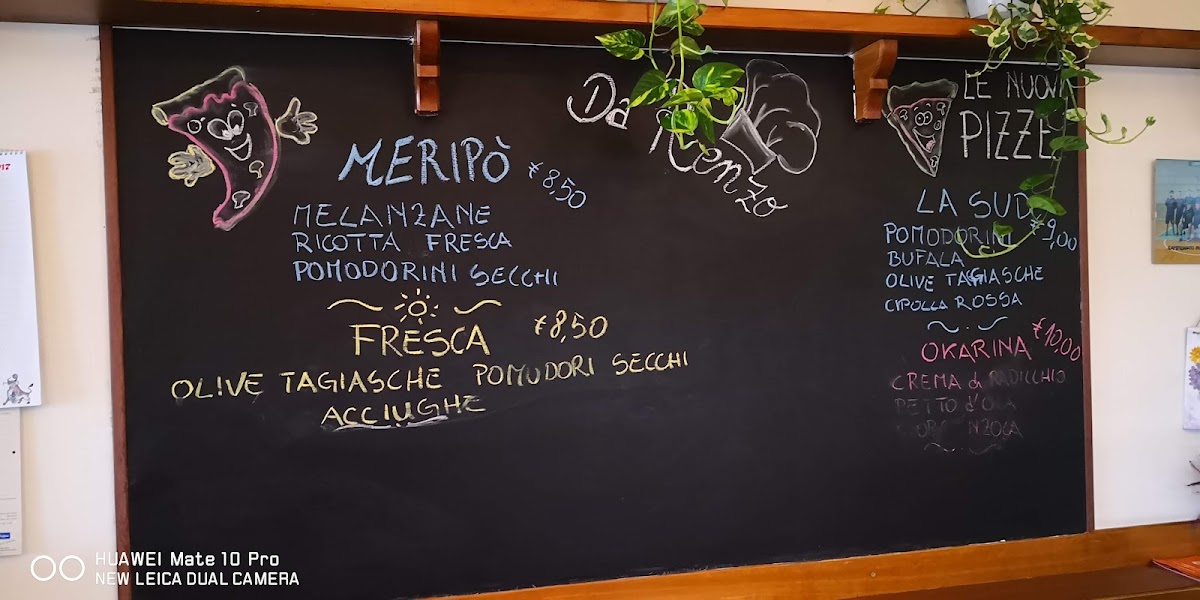 MERIPÒ €8,50
MELANZANE
RICOTTA FRESCA
POMODORINI SECCHI
FRESCA €8,50
OLIVE TAGIASCHE POMODORI SECCHI
ACCIUGHE
Da
LE NUOVE
PIZZE
LA SUD €9,00
POMODORINI
BUFALA
OLIVE TAGIASCHE
CIPOLLA ROSSA
OKARINA €10,00
CREMA di RADICCHIO
PETTO d'OCA
HUAWEI Mate 10 Pro
NEW LEICA DUAL CAMERA